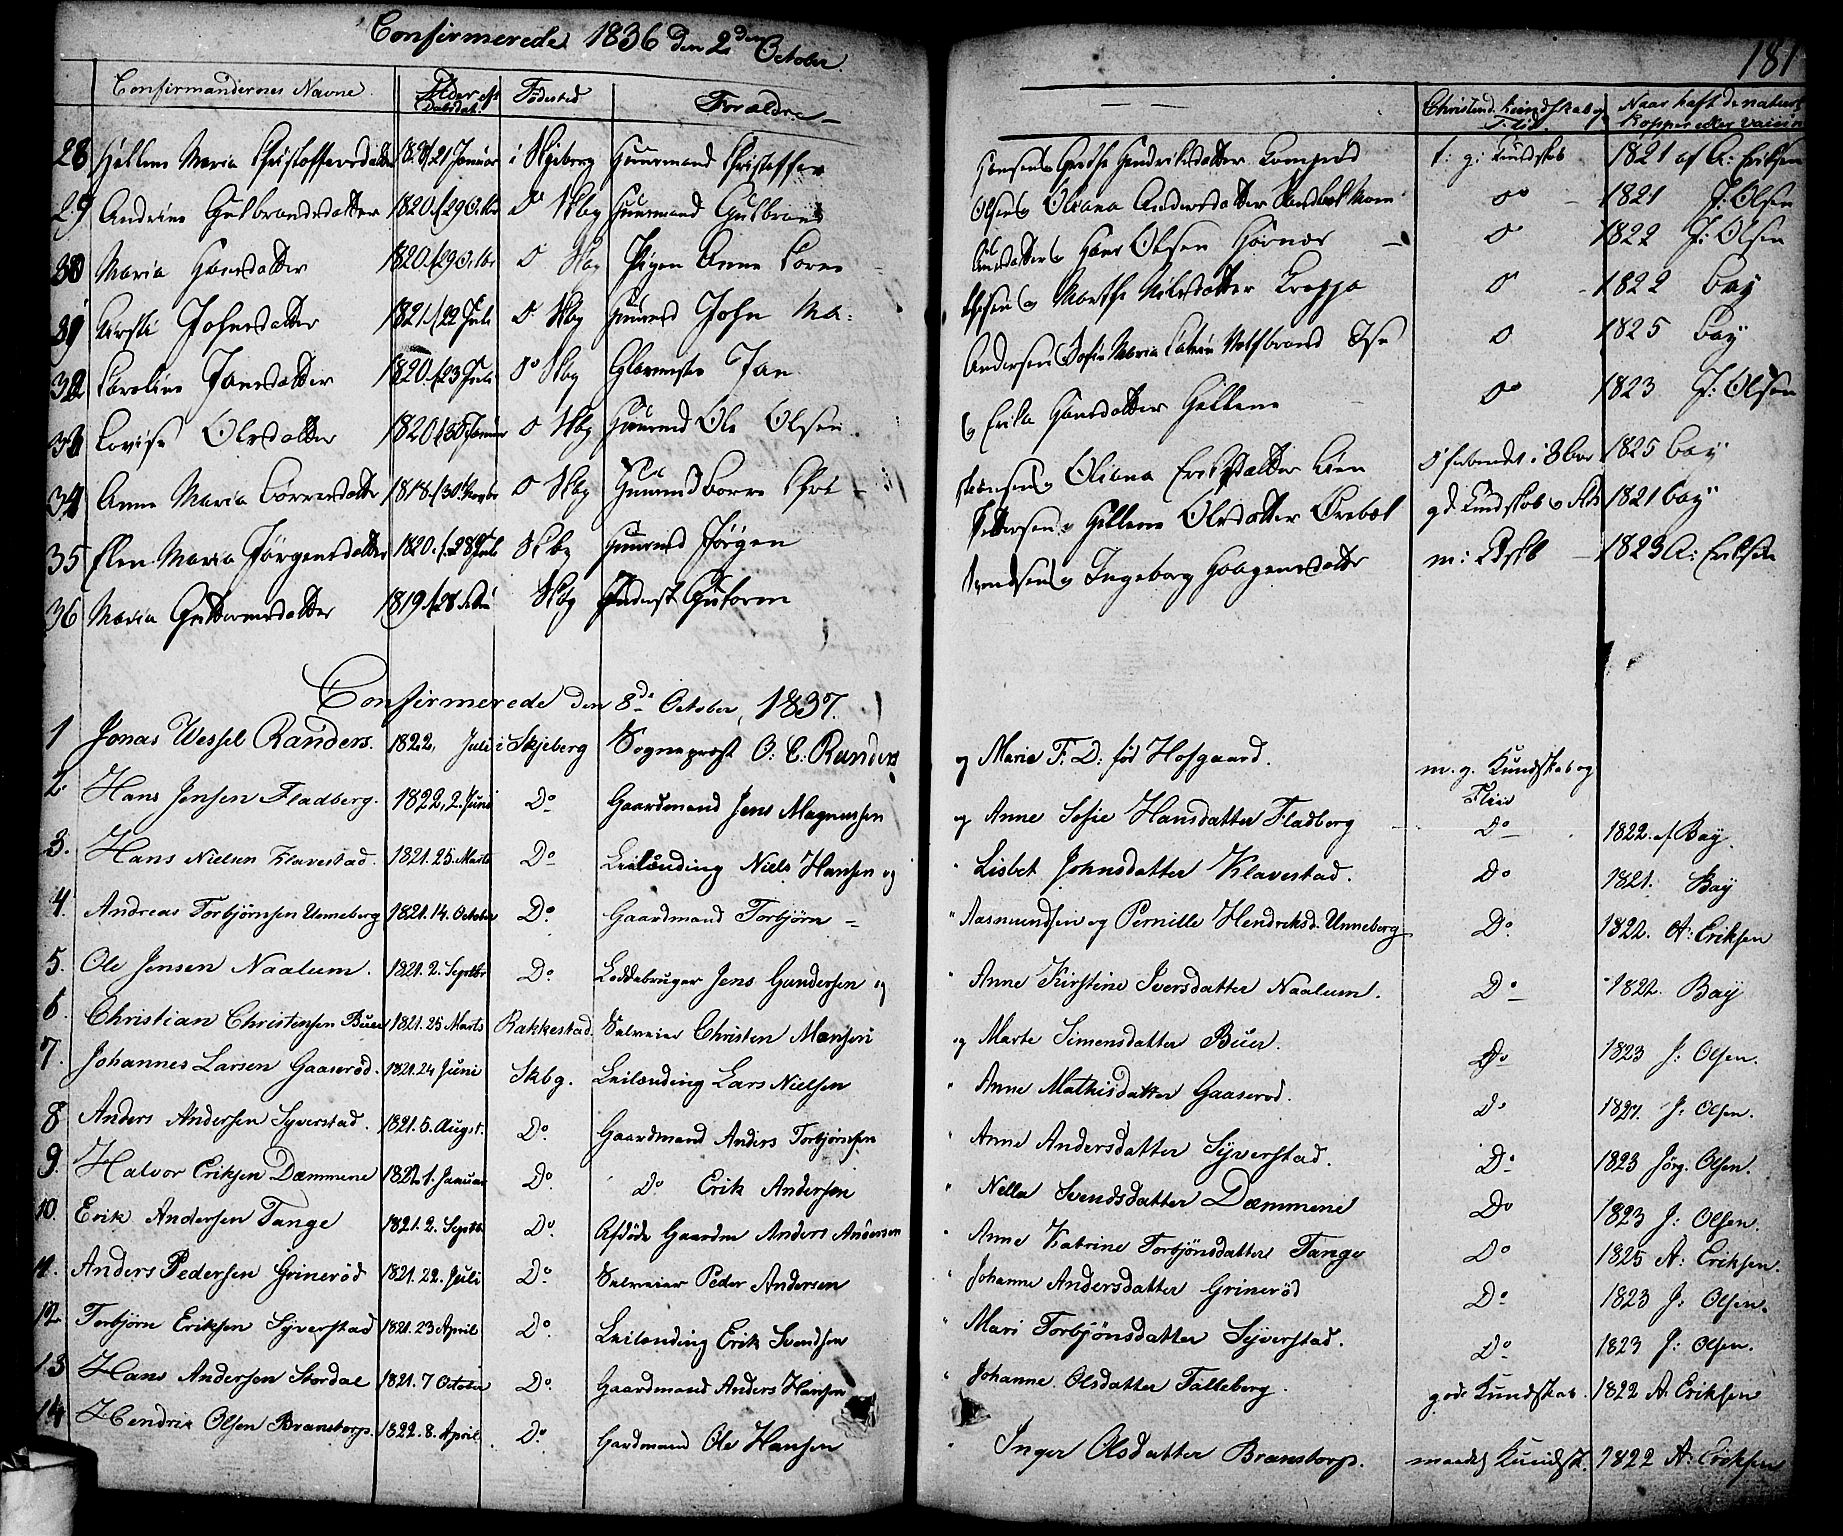 Confirmerede 1836 den 2den October.
181
Confirmandernes Navne. Alder eft. Daabsdat. Fødested Forældre — — — Christend. Kundskab og Flid. Naar haft de naturl. Kopper eller vaccin
28 Hellene Maria Christoffersdatter 21 Januar i Skjeberg Huusmand Christoffer Hansen og Grethe Hendriksdatter t: g: Kundskab 1821 af A: Eriksen
29 Andrine Gulbrandsdatter 1820 29 Octbr Do Skbg Huusmand Gulbrand Olsen og Oleana Andersdatter Do — 1821 J: Olsen
30 Maria Hansdatter 1820 29 Octbr D Skbg Pigen Anne Larsdatter og Hans Olsen Hornæs — D 1822 J: Olsen
31 Kirsti Johnsdatter 1821 22 Juli D Skbg Huusmd John Ma: thisen og Marthe Nilsdatter D — 1822 Bay
32 Caroline Jansdatter 1820 23 Juli Do Skbg Glarmester Jan Andersen og Sofie Maria D 1825 Bay
33 Lovise Olsdatter 1820 30 Januar D Skbg Huusmd Ole Olsen og Erika Hansdatter Gellene Do 1823 J: Olsen
34 Anne Maria Børresdatter 1818 30 D Skbg Huusmd Børre Chri- stiansen og Oliana Eriksdatter Lien D 1825 Bay
35 Elen Maria Jørgensdatter 1820 28 Juli Skbg Huusmd Jørgen Pettersen og Hellene Olsdatter Ørebæk gd Kundskab og Flid 1821 Bay
36 Maria Guttormsdatter 1819 Skbg Guttorm Svendsen og Ingeborg Haagensdatter m: 1823 A: Eriksen
Confirmerede den 8de October, 1837.
1 Jonas Wessel Randers. 1822, Juli i Skjeberg Sognepræst O: C: Randers og Marie F. D: fød Hofgaard. m. g. Kundskab og Fliid
2. Hans Jensen Fladberg. 1822, 2. Juni Do Gaardmand Jens Magnussen og Anne Sofie Hansdatter Fladberg Do 1822. af Bay.
3. Hans Nielsen Klavestad. 1821. 25. Marts Do Leilænding Niels Hansen og " Lisbet Johnsdatter Klavestad. Do 1821. Bay
4. Andreas Torbjørnsen Unneberg 1821. 14. October Do. Gaardmand Torbjørn = " Aasmundsen og Pernille Hendriksd. Unneberg Do. 1822. A: Eriksen
5. Ole Jensen Naalum. 1821. 2. Septbr Do. Loddebruger Jens Gundersen og " Anne Kirstine Iversdatter Naalum. Do 1822. Bay
6. Christian Christensen Buer 1821. 25 Marts Rakkestad. Selveier Christen Monsen og Marte Simensdatter Buer. Do 1823 J: Olsen.
7. Johannes Larsen Gaaserød. 1821. 24 Juni Skbg. Leilænding Lars Nielsen " Anne Mathisdatter Gaaserød. Do J: Olsen.
8 Anders Andersen Syverstad. 1821. 5. Augst. Do. Gaardmand Anders Torbjørnsen " Anne Andersdatter Syverstad. Do 1823 Jørg. Olsen.
9. Halvor Eriksen Dæmmene 1822 1. Januar Do. Do Erik Andersen " Nella Svendsdatter Dæmmene Do 1823 J: Olsen.
10. Erik Andersen Tange 1821. 2. Septbr Do. Afdøde Gaardm Anders Andersen " Anne Katrine Torbjønsdatter Tange Do 1825 A: Eriksen.
11. Anders Pedersen Grinerød 1821. 22. Juli Do. Selveier Peder Andersen " Johanne Andersdatter Grinerød Do 1823 J: Olsen.
12 Torbjørn Eriksen Syverstad 1821. 23 April Do. Leilænding Erik Svendsen " Mari Torbjønsdatter Syverstad. Do 1823 J: Olsen.
13 Hans Andersen Stordal 1821. 7 October Do. Gaardmand Anders Hansen " Johanne Olsdatter Talleberg. gode Kundskab. 1822 A: Eriksen
14 Hendrik Olsen Branstorp. 1822. 8. April. Do. Gardmand Ole Hansen " Inger Olsdatter Branstorp. maadel Kundsk. 1822 A: Eriksen